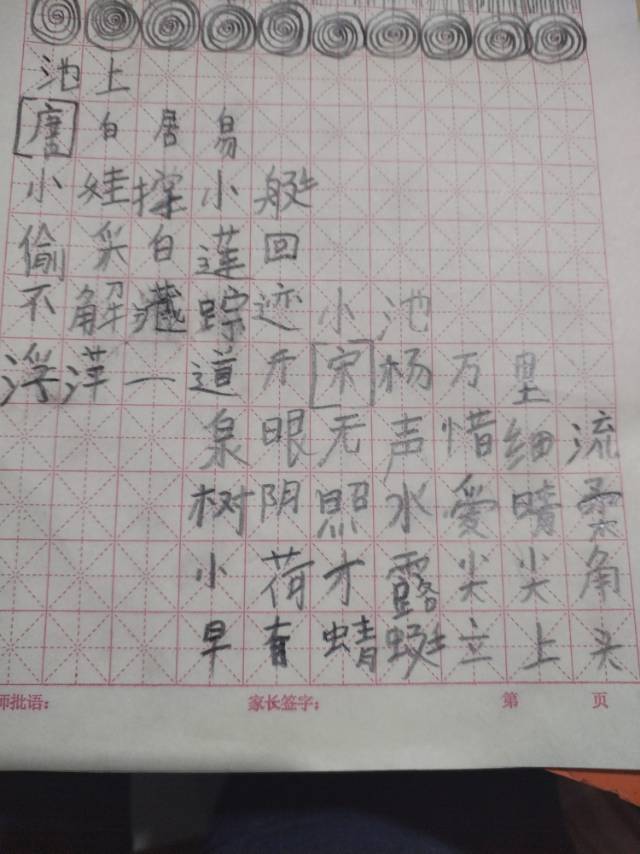 池上
[唐]白居易
小娃撑小艇
偷采白莲回
不解藏踪迹
浮萍一道开
小池
[宋]杨万里
泉眼无声惜细流
树阴照水爱晴柔
小荷才露尖尖角
早有蜻蜓立上头
师批语:
家长签字:
第 页